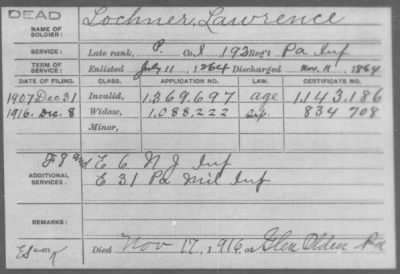 DEAD
NAME OF SOLDIER: Lochner, Lawrence
SERVICE: Late rank, P. Co. I, 193 Reg't Pa Inf
TERM OF SERVICE: Enlisted July 11, 1864 Discharged Nov. 11, 1864
DATE OF FILING. CLASS. APPLICATION NO. LAW. CERTIFICATE NO.
1907 Dec 31 Invalid, 1,369,697 age 1,143,186
1916. Dec. 8 Widow, 1,088,222 834 708
Minor,
ADDITIONAL SERVICES: F 8 and E 6 N J Inf
E 31 Pa Mil Inf
REMARKS:
Died Nov 17, 1916, at Glen Olden Pa